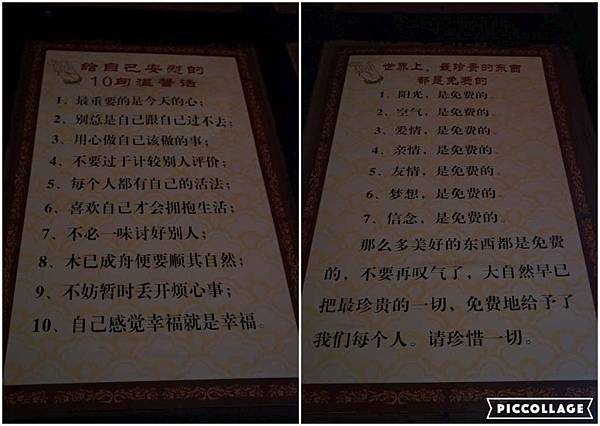 给自己安慰的
10句温馨话
1、最重要的是今天的心；
2、别总是自己跟自己过不去；
3、用心做自己该做的事；
4、不要过于计较别人评价；
5、每个人都有自己的活法；
6、喜欢自己才会拥抱生活；
7、不必一味讨好别人；
8、木已成舟便要顺其自然；
9、不妨暂时丢开烦心事；
10、自己感觉幸福就是幸福。
世界上，最珍贵的东西
都是免费的
1、阳光，是免费的。
2、空气，是免费的。
3、爱情，是免费的。
4、亲情，是免费的。
5、友情，是免费的。
6、梦想，是免费的。
7、信念，是免费的。
那么多美好的东西都是免费
的，不要再叹气了，大自然早已
把最珍贵的一切，免费地给予了
我们每个人。请珍惜一切。
PICCOLLAGE